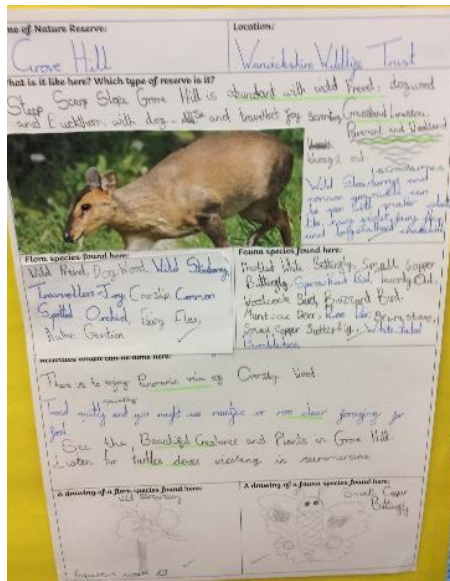 me of Nature Reserve:
Grove Hill
Location:
Warwickshire Wildlife Trust
hat is it like here? Which type of reserve is it?
Steep Scarp Slope Grove Hill is abundant with wild Privet, dogwood
and with dog and travellers joy
Grassland
and Woodland
Wild Strawberrys and
common
Flora species found here:
Wild Privet, Dog wood, Wild Strawberry,
Travellers Joy, Cowslip Common
Spotted Orchid, Fairy Flax,
Gentian
Fauna species found here:
Marbled White Butterfly, Small Copper
Butterfly, Sparrowhawk Bird, Tawny Owl,
Woodcock Bird, Buzzard Bird,
Muntjac Deer, Roe Deer,
Small Copper Butterfly, White-tailed
Bumblebee
Activities which can be done here:
There is to enjoy Panoramic view of Wood
Tread quietly and you might see muntjac or roe deer foraging for
food
See the Beautiful Creatures and Plants in Grove Hill.
Listen for turtle doves in summertime
A drawing of a flora species found here:
Wild Strawberry
A drawing of a fauna species found here:
Small Copper
Butterfly